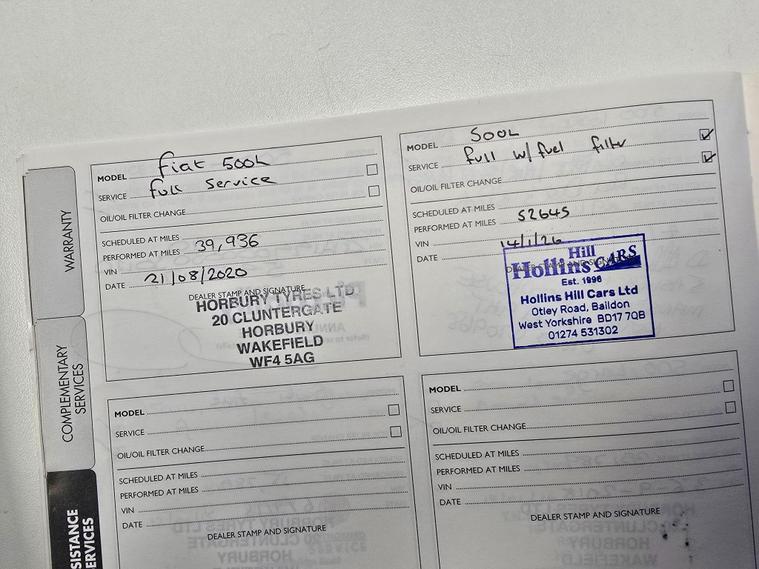 WARRANTY
COMPLEMENTARY
SERVICES
SISTANCE
ERVICES
MODEL Fiat 500L
SERVICE full service
OIL/OIL FILTER CHANGE
SCHEDULED AT MILES
PERFORMED AT MILES 39,936
VIN
DATE 21/08/2020
DEALER STAMP AND SIGNATURE
HORBURY TYRES LTD
20 CLUNTERGATE
HORBURY
WAKEFIELD
WF4 5AG
MODEL 500L
SERVICE full w/fuel filter
OIL/OIL FILTER CHANGE
SCHEDULED AT MILES
PERFORMED AT MILES 52645
VIN
DATE 14/1/26
Hill
Hollins CARS
Est. 1996
Hollins Hill Cars Ltd
Otley Road, Baildon
West Yorkshire BD17 7QB
01274 531302
MODEL
SERVICE
OIL/OIL FILTER CHANGE
SCHEDULED AT MILES
PERFORMED AT MILES
VIN
DATE
DEALER STAMP AND SIGNATURE
MODEL
SERVICE
OIL/OIL FILTER CHANGE
SCHEDULED AT MILES
PERFORMED AT MILES
VIN
DATE
DEALER STAMP AND SIGNATURE